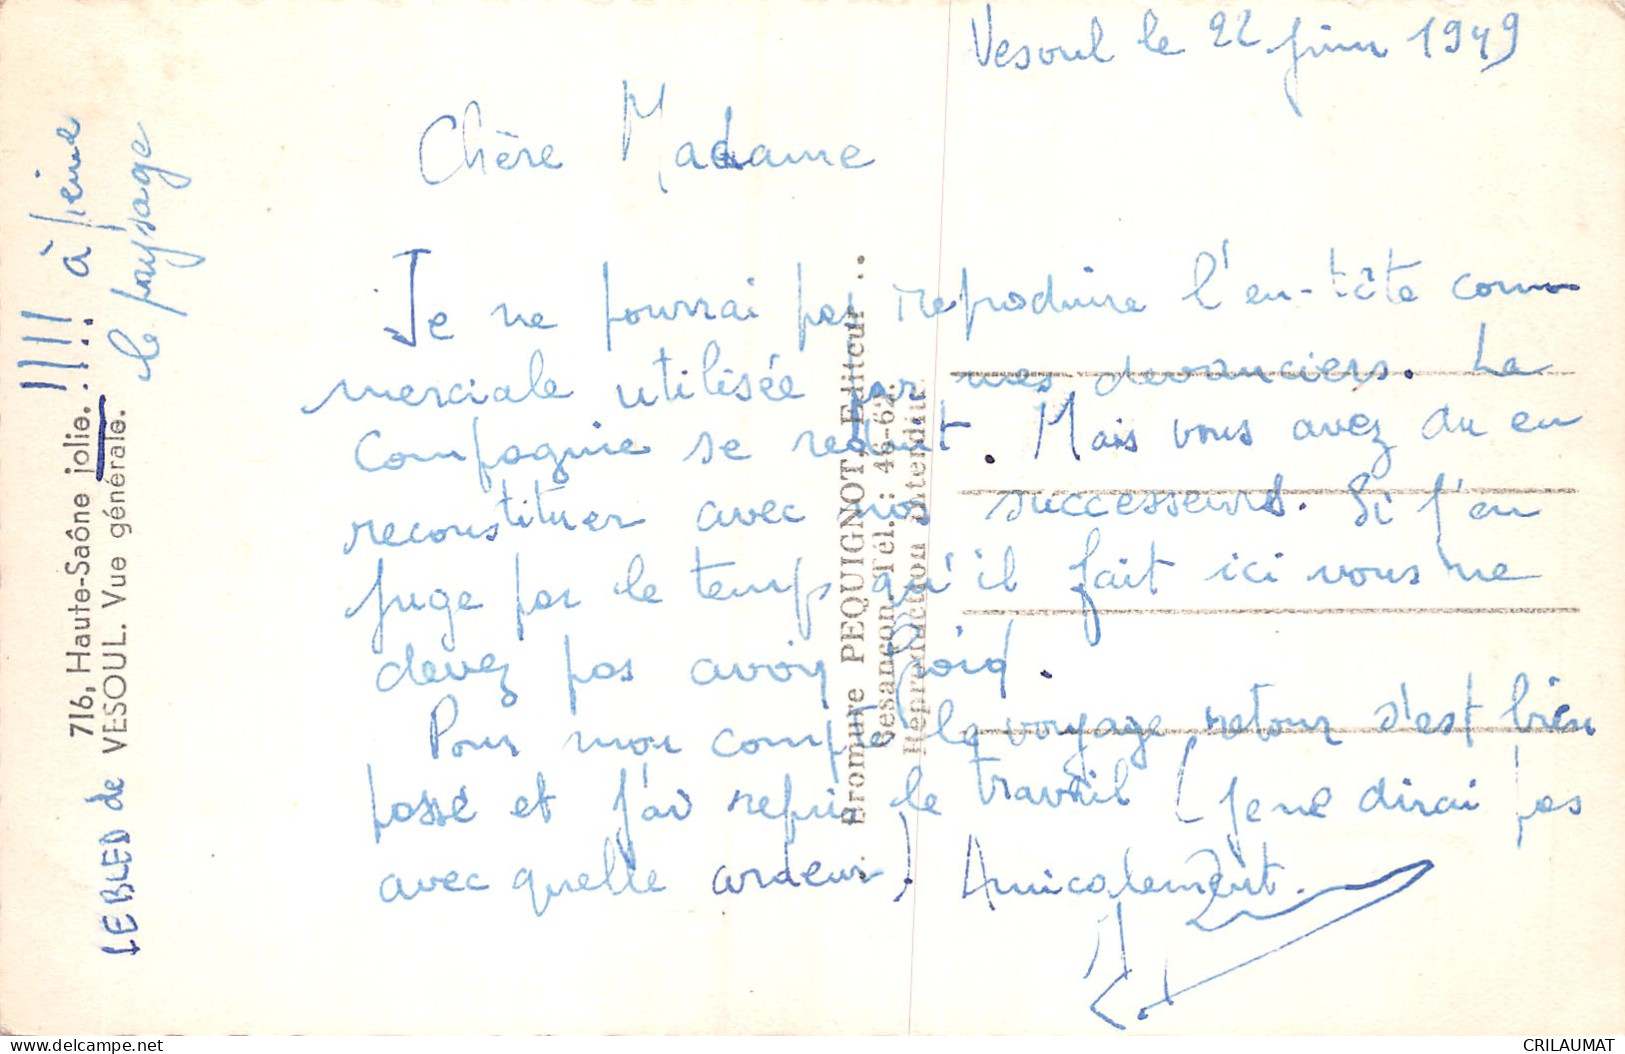 Vesoul le 22 juin 1949
Chère Madame
Je ne pourrai pas reproduire l'en-tête com
merciale utilisée par mes devanciers. La
Compagnie se réduit. Mais vous avez du en
reconstituer avec nos successeurs. Si j'en
juge par le temps qu'il fait ici vous ne
devez pas avoir froid.
Pour mon compte le voyage retour s'est bien
passé et j'ai repris le travail (je ne dirai pas
avec quelle ardeur). Amicalement.
716, Haute-Saône jolie. !!!! à peine
LE BLED de VESOUL. Vue générale. le paysage
Bromure PEQUIGNOT, Editeur
Besançon. Tél.: 46-62.
Reproduction interdite
CRILAUMAT